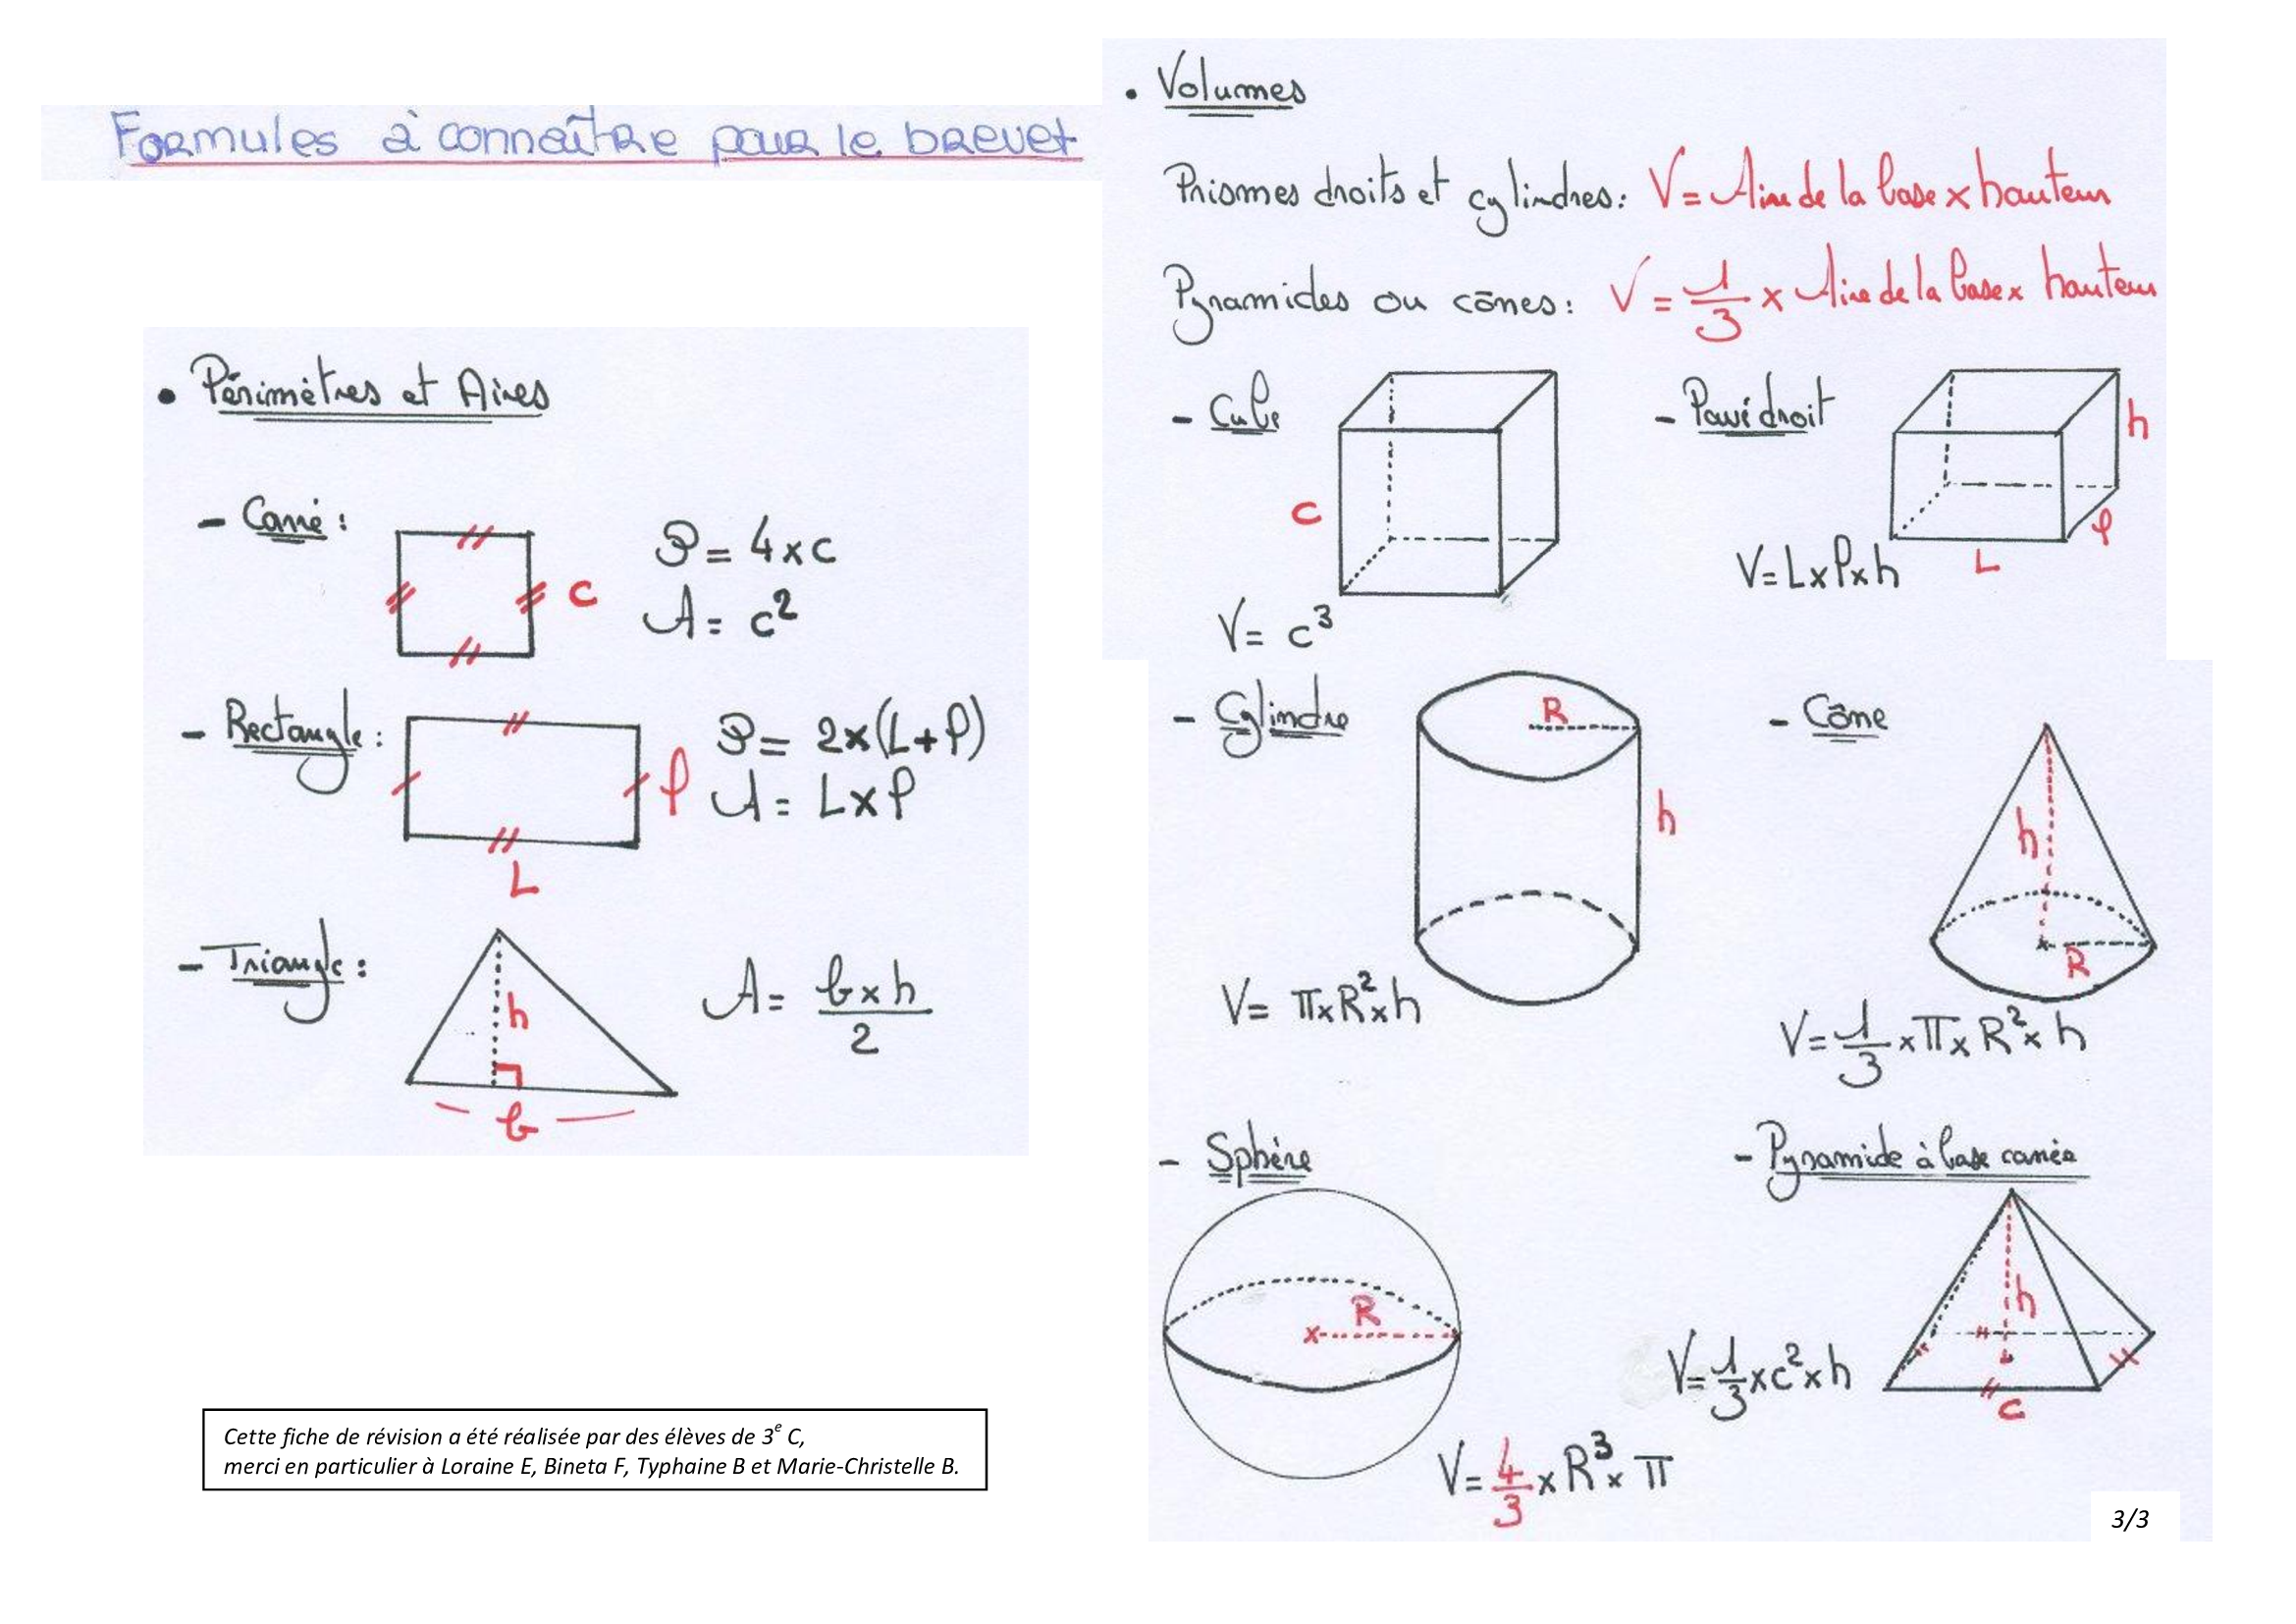 Formules à connaître pour le brevet
• Périmètres et Aires
- Carré :
c
P = 4 x c
A = c²
- Rectangle :
l
L
P = 2 x (L + l)
A = L x l
- Triangle :
h
b
A = b x h / 2
Cette fiche de révision a été réalisée par des élèves de 3e C,
merci en particulier à Loraine E, Bineta F, Typhaine B et Marie-Christelle B.
• Volumes
Prismes droits et cylindres : V = Aire de la base x hauteur
Pyramides ou cônes : V = 1/3 x Aire de la base x hauteur
- Cube
c
V = c³
- Pavé droit
h
l
L
V = L x l x h
- Cylindre
R
h
V = π x R² x h
- Cône
h
R
V = 1/3 x π x R² x h
- Sphère
R
V = 4/3 x R³ x π
- Pyramide à base carrée
h
c
V = 1/3 x c² x h
3/3